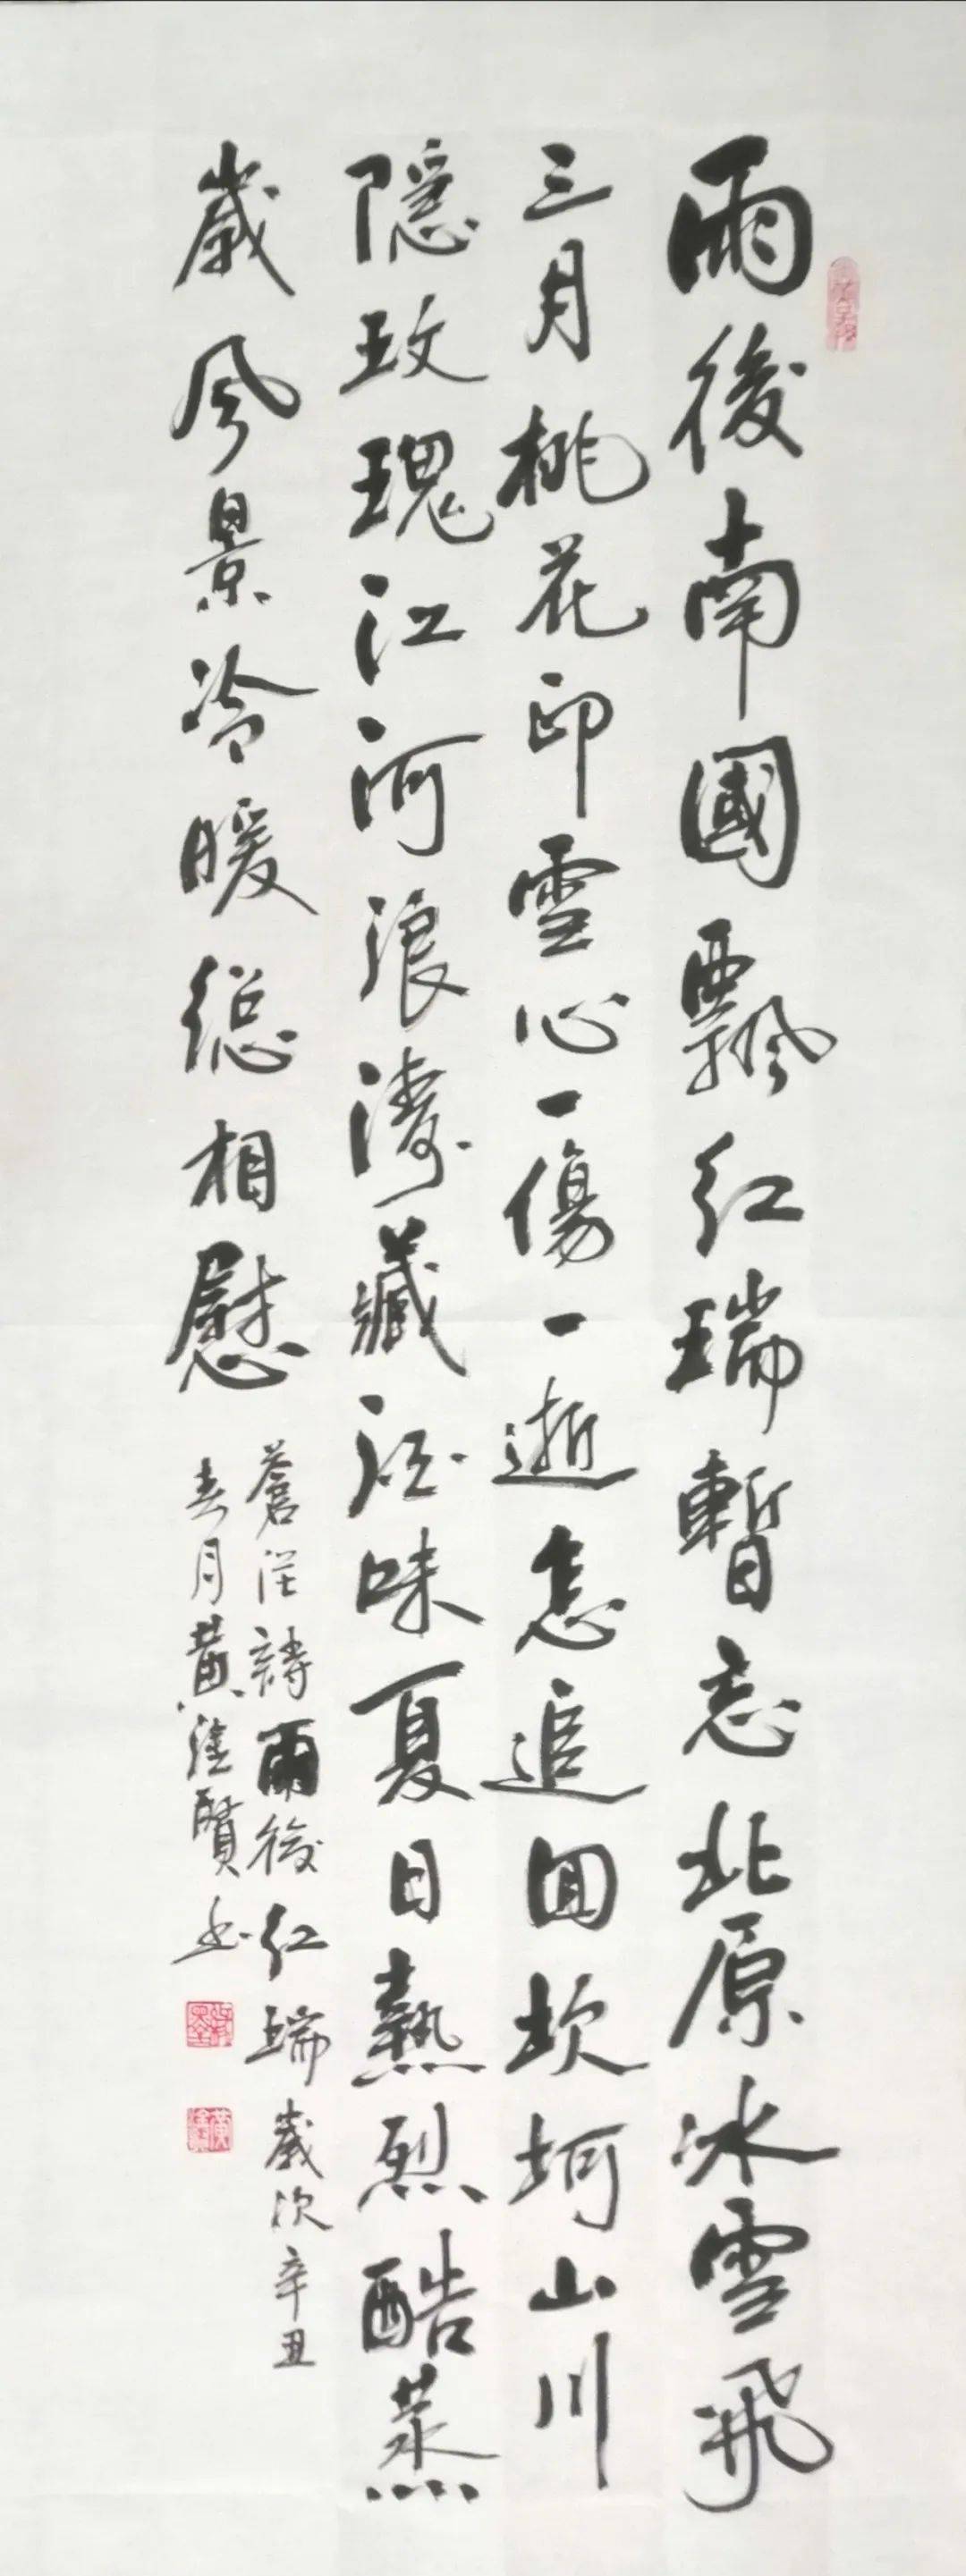 雨後南國飄紅瑞暫忘北原冰雪飛
三月桃花印雪心一傷一逝怎追回坎坷山川
隱玫瑰江河浪濤藏征味夏日熱烈酷蒸
歲風景冷暖總相慰
蒼茫詩雨後紅瑞歲次辛丑
去月黃隆賢書